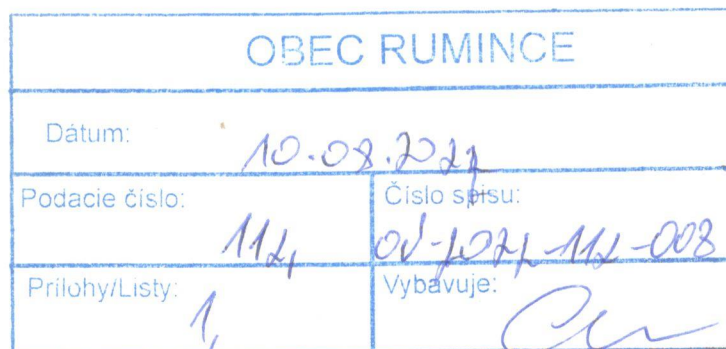 OBEC RUMINCE
Dátum: 10.08.2022
Podacie číslo: 112
Číslo spisu: OÚ-2022-112-008
Prílohy/Listy: 1
Vybavuje: